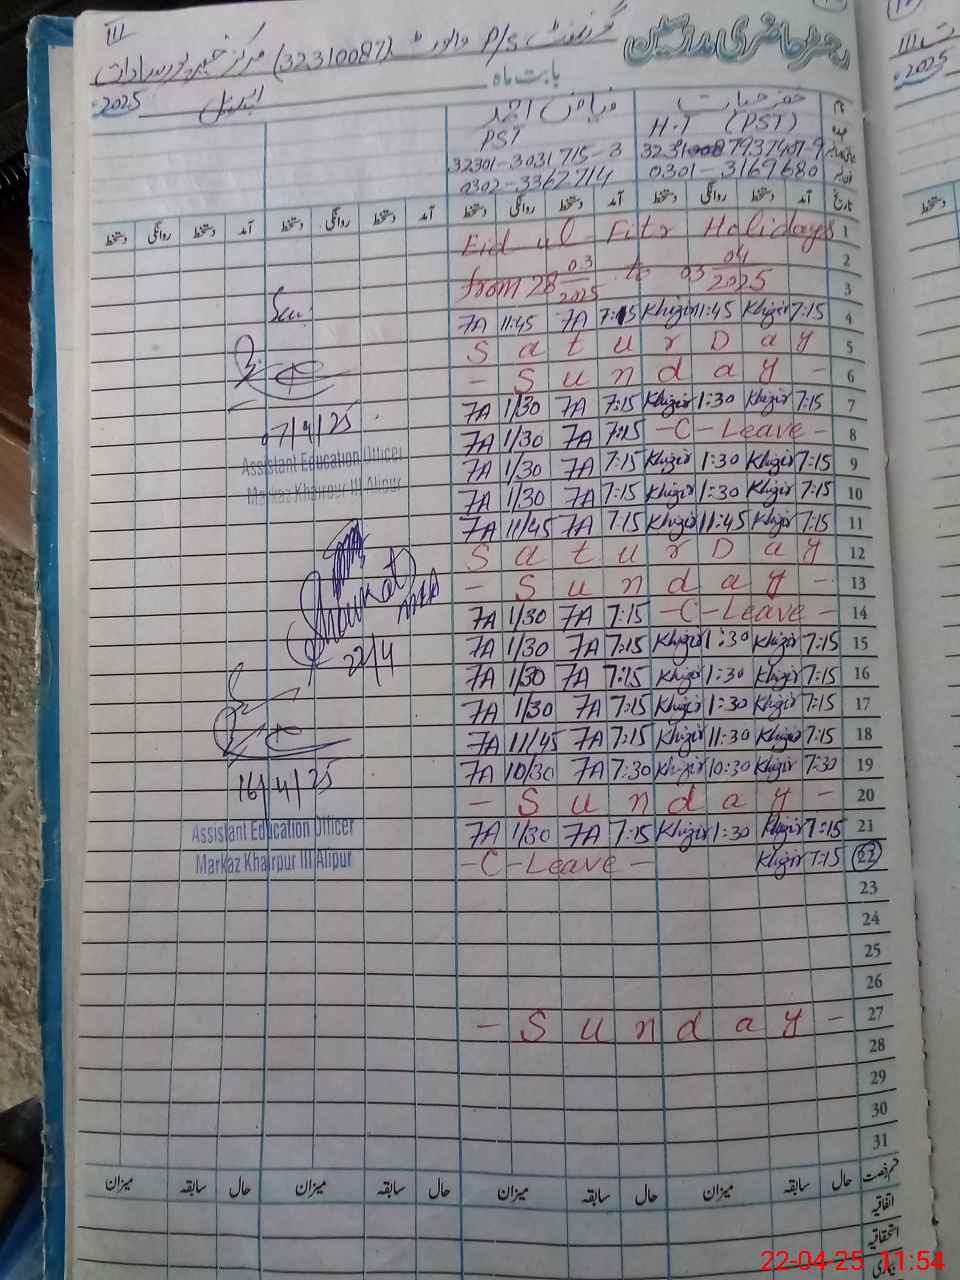 رجسٹر حاضری مدرسین
گورنمنٹ P/S (32310087) مرکز خیرپور سادات III
بابت ماہ اپریل 2025
خضر حیات
فیاض احمد
H.T (PST)
PST
32301-3031715-3
0301-3169680
0302-3362714
تاریخ آمد دستخط روانگی دستخط آمد دستخط روانگی دستخط آمد دستخط روانگی دستخط آمد دستخط روانگی دستخط
Eid ul Fitr Holidays 1
2
from 28 03/2025 to 03 04/2025 3
7A 11:45 7A 7:15 Khizir 11:45 Khizir 7:15 4
S a t u r D a y 5
- S u n d a y - 6
7A 1/30 7A 7:15 Khizir 1:30 Khizir 7:15 7
7A 1/30 7A 7:15 -C-Leave- 8
7A 1/30 7A 7:15 Khizir 1:30 Khizir 7:15 9
7A 1/30 7A 7:15 Khizir 1:30 Khizir 7:15 10
7A 11/45 7A 7:15 Khizir 11:45 Khizir 7:15 11
S a t u r D a y 12
- S u n d a y - 13
7A 1/30 7A 7:15 -C-Leave- 14
7A 1/30 7A 7:15 Khizir 1:30 Khizir 7:15 15
7A 1/30 7A 7:15 Khizir 1:30 Khizir 7:15 16
7A 1/30 7A 7:15 Khizir 1:30 Khizir 7:15 17
7A 11/45 7A 7:15 Khizir 11:30 Khizir 7:15 18
7A 10/30 7A 7:30 Khizir 10:30 Khizir 7:30 19
- S u n d a y - 20
7A 1/30 7A 7:15 Khizir 1:30 Khizir 7:15 21
-C-Leave- Khizir 7:15 22
23
24
25
26
- S u n d a y - 27
28
29
30
31
07/4/25
Assistant Education Officer
Markaz Khairpur III Alipur
Shaukat
22/4
16/4/25
Assistant Education Officer
Markaz Khairpur III Alipur
قسم رخصت حال سابقہ میزان حال سابقہ میزان حال سابقہ میزان حال سابقہ میزان
اتفاقیہ
استحقاقیہ
بیماری
22-04-25 11:54